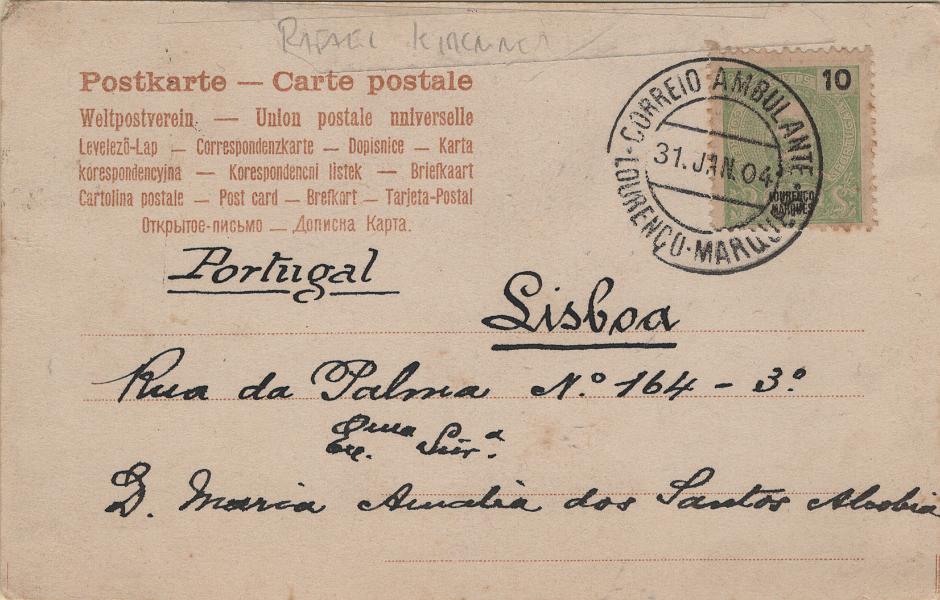 RAFAEL
Postkarte — Carte postale
Weltpostverein — Union postale nniverselle
Levelező-Lap — Correspondenzkarte — Dopisnice — Karta
korespondencyjna — Korespondencni listek — Briefkaart
Cartolina postale — Post card — Brefkort — Tarjeta-Postal
Открытое-письмо — Дописна Карта.
CORREIO AMBULANTE
31. JAN. 04
LOURENÇO-MARQUES
10
LOURENÇO
MARQUES
Portugal
Lisboa
Rua da Palma Nº 164 - 3º
Exma Snra
D. Maria Amalia dos Santos Alcobia